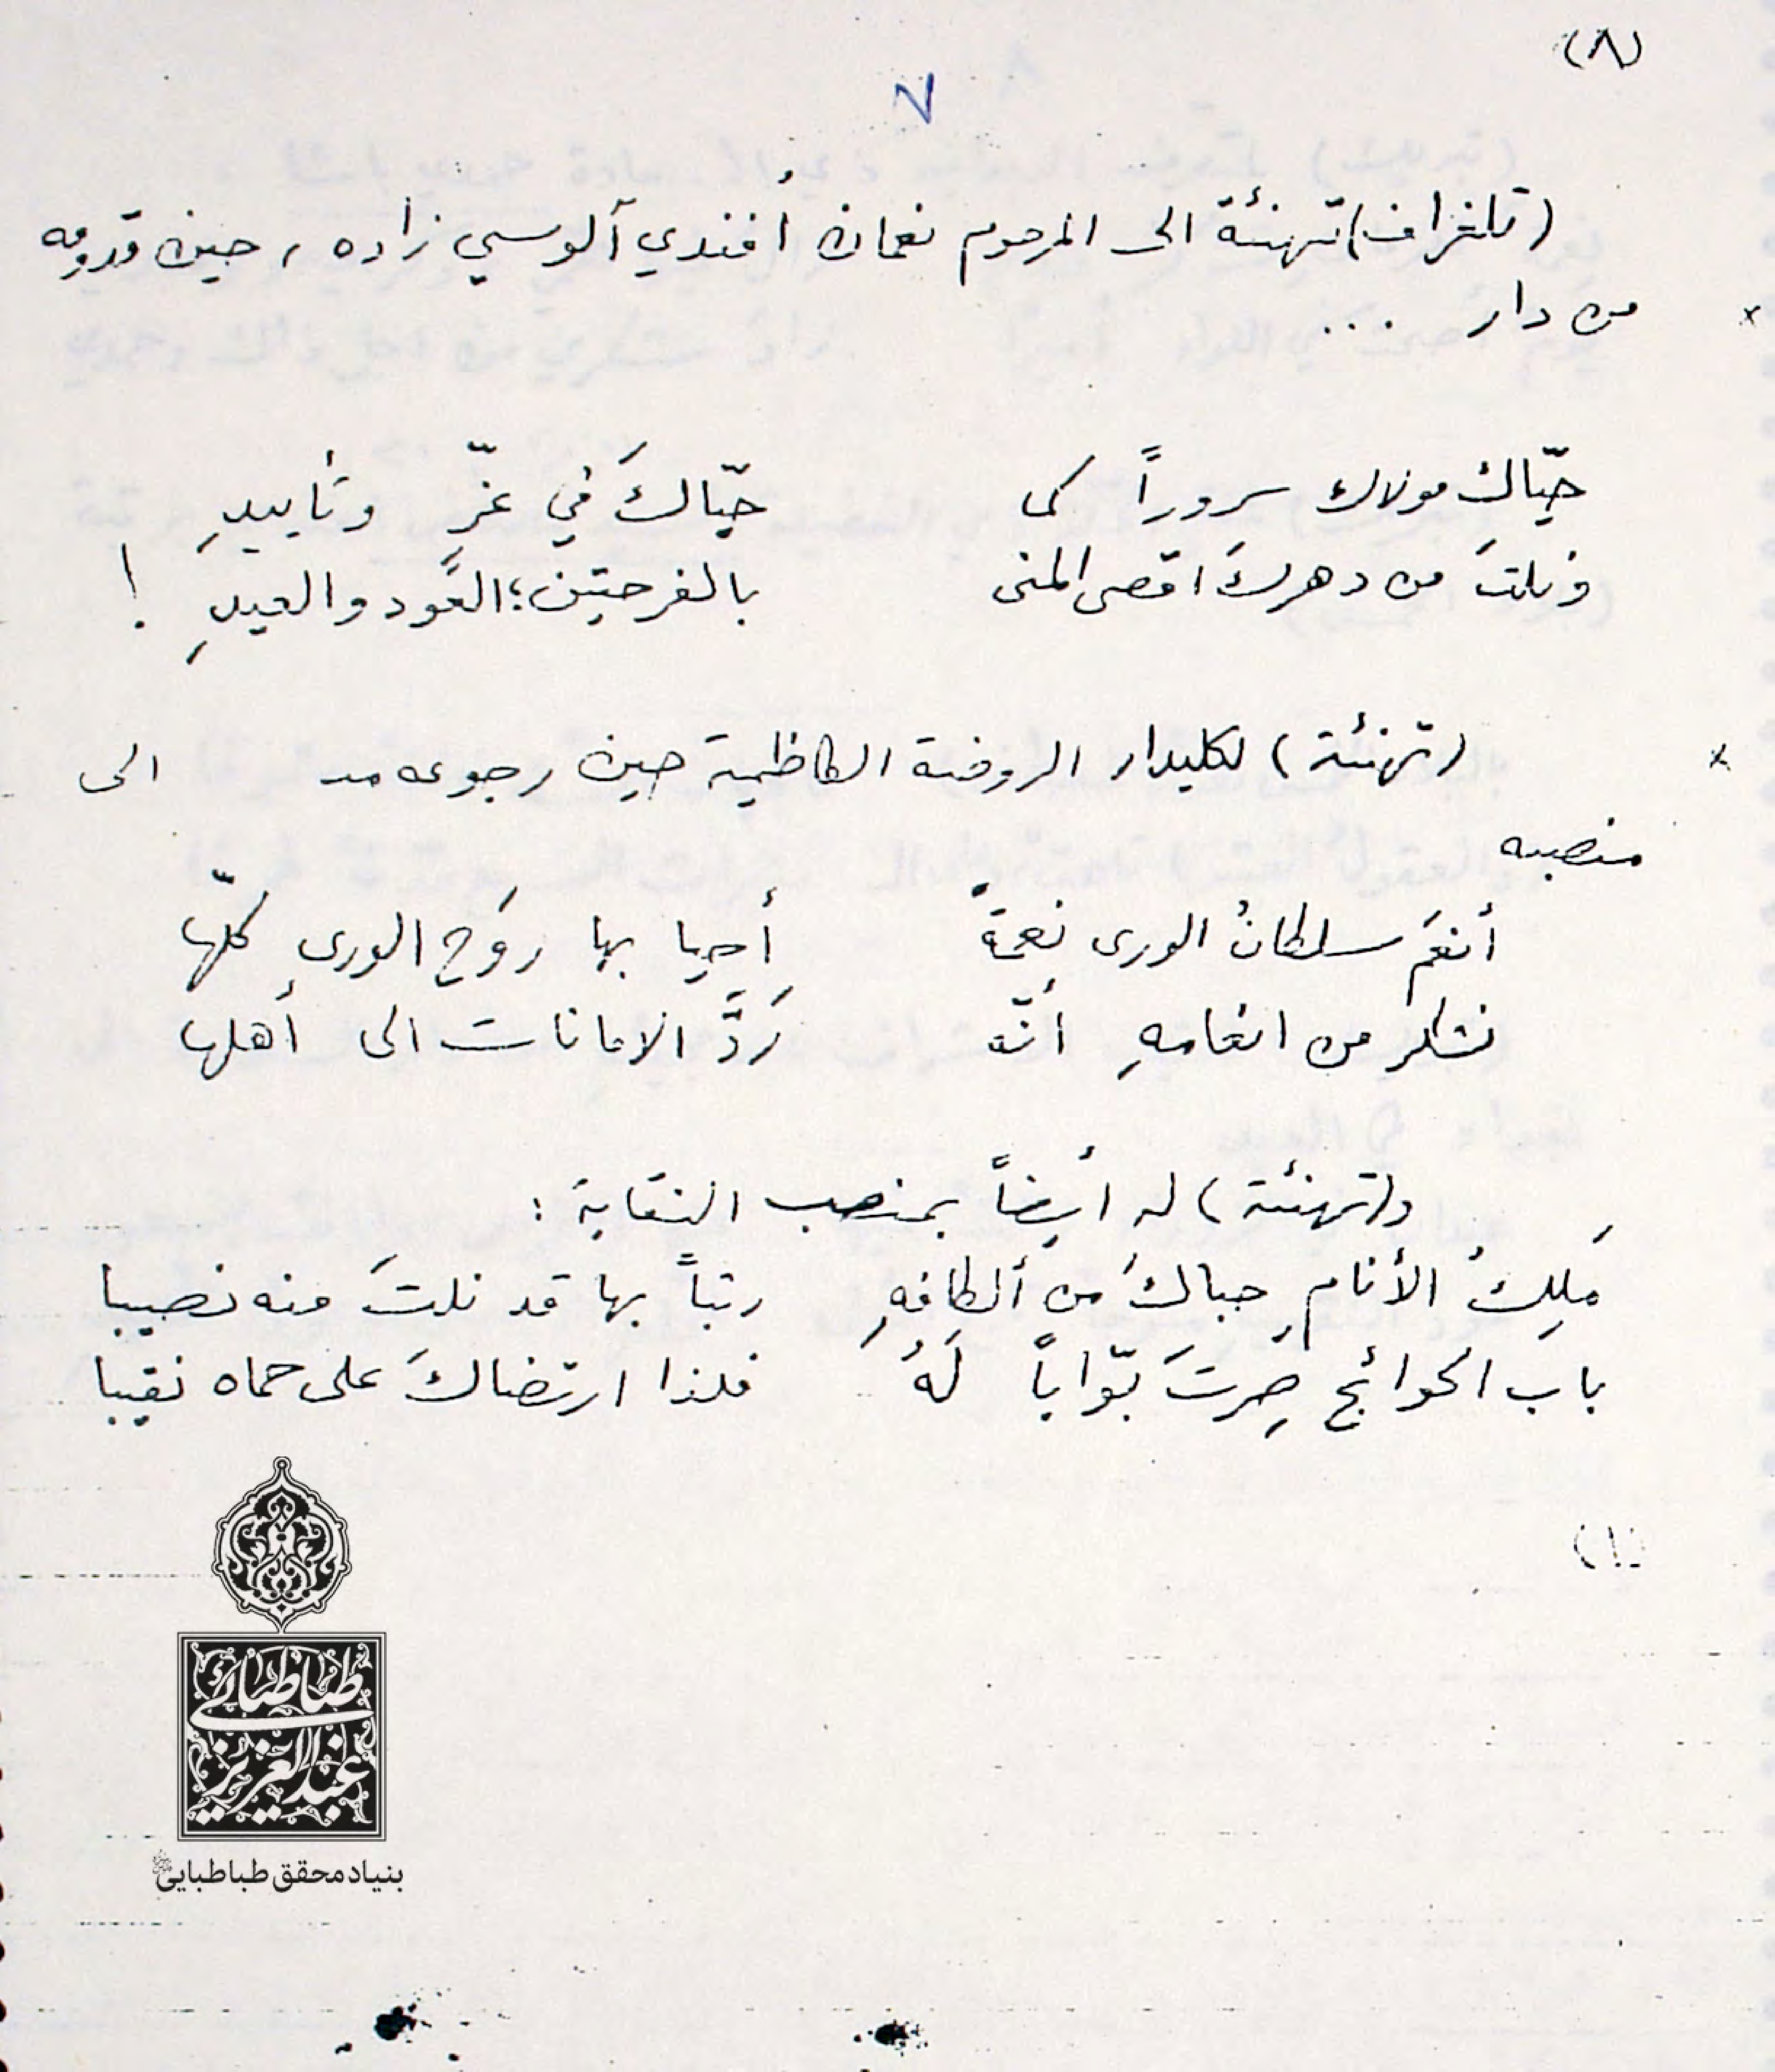 (٨)
٧
(تلغراف) تهنئة الى المرحوم نعمان أفندي آلوسي زاده، حين قدومه
من دار ...
حيّاك مولاك سروراً كما حيّاكَ في عزّ وتأييدِ
ونلتَ من دهركَ اقصى المنى بالفرحتين؛ العَود والعيدِ !
(تهنئة) لكليدار الروضة الكاظمية حين رجوعه الى
منصبه
أنعَم سلطانُ الورى نِعمةً أحيا بها روَح الورى كلّها
نشكر من انعامهِ أنّه رَدَّ الامانات الى أهلها
و(تهنئة) له أيضاً بمنصب النقابة :
مَلِكُ الأنامِ حباكَ من ألطافهِ رتباً بها قد نلتَ منه نصيبا
باب الحوائج صِرتَ بوّاباً لَهُ فلذا ارتضاكَ على حماه نقيبا
(١)
طباطبائی
عبدالعزیز
بنیاد محقق طباطبایی